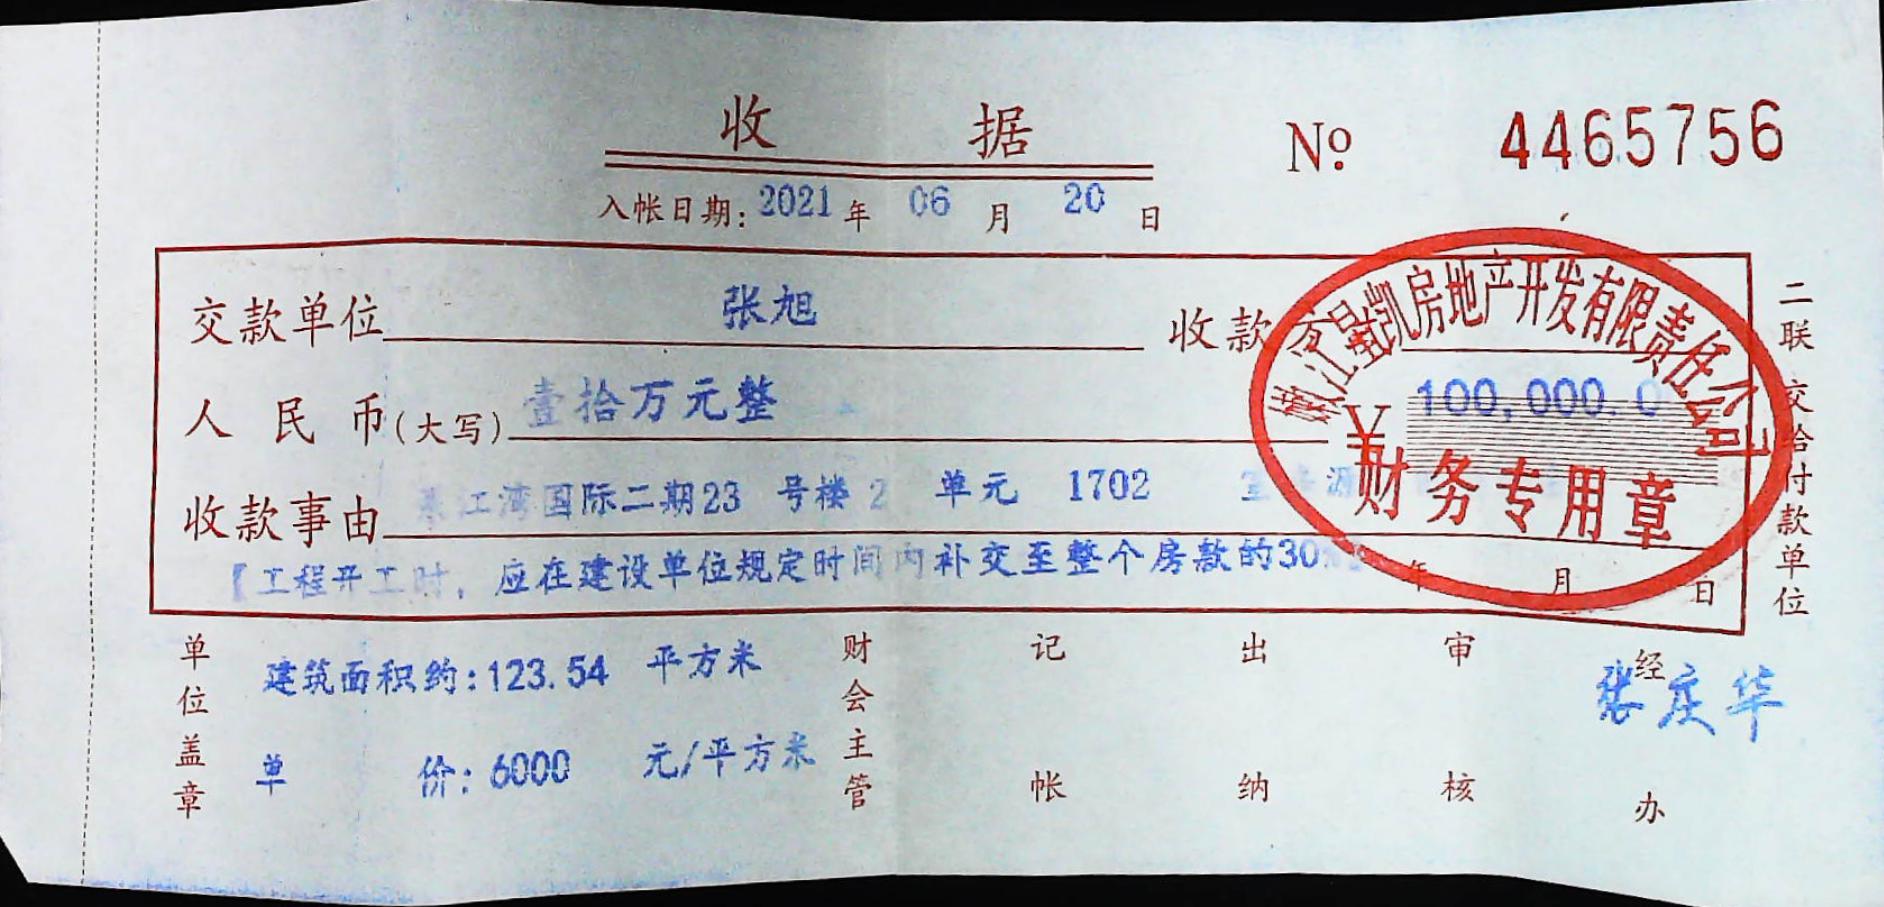 收 据
№ 4465756
入帐日期: 2021 年 06 月 20 日
交款单位 张旭 收款
人民币(大写) 壹拾万元整 ¥ 100,000.0
收款事由 江湾国际二期23 号楼 2 单元 1702
【工程开工时, 应在建设单位规定时间内补交至整个房款的30% 年 月 日
嫩江 凯房地产开发有限责任公司
财务专用章
二联 交给付款单位
单位盖章
建筑面积约:123.54 平方米
单 价: 6000 元/平方米
财会主管
记帐
出纳
审核
经办
张庆华